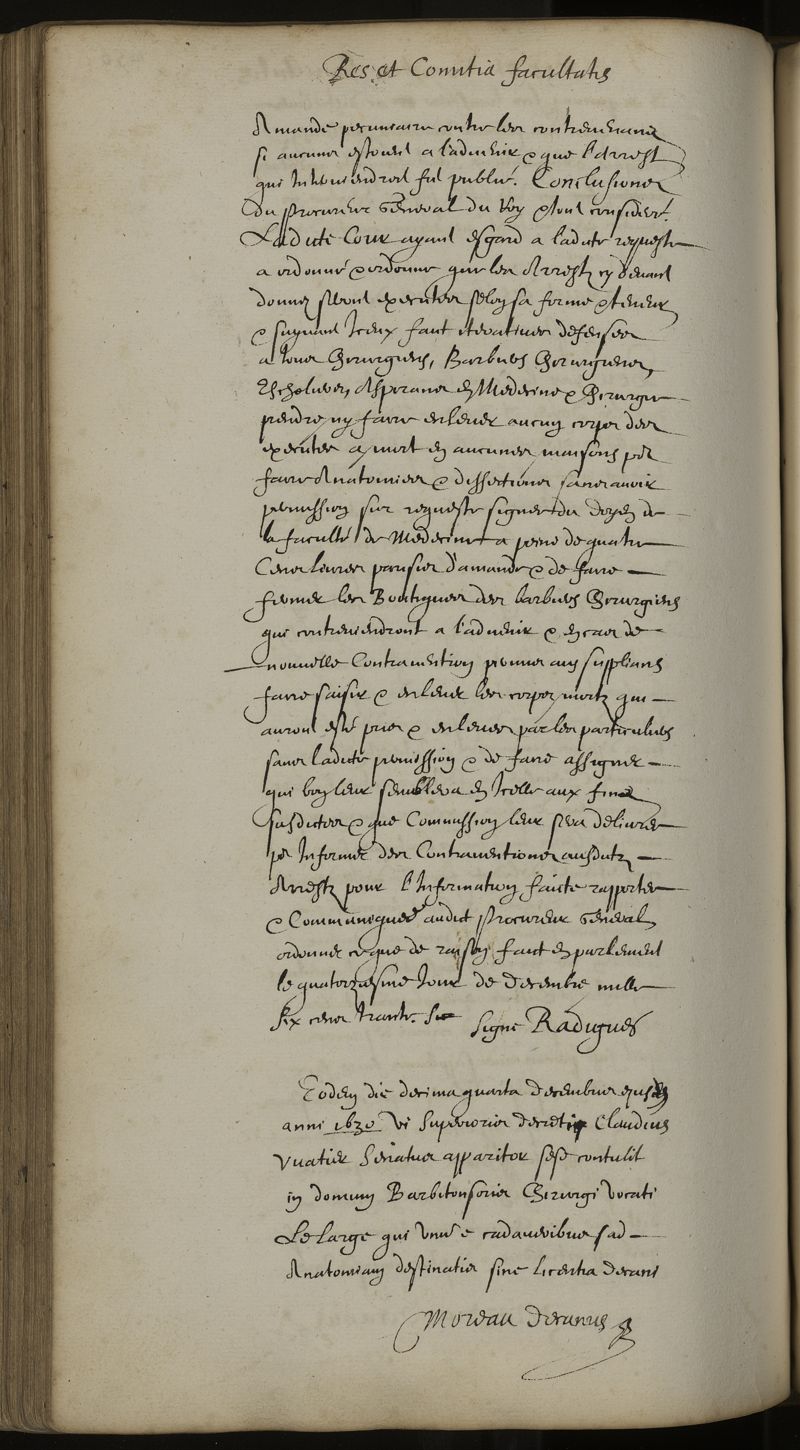 Res et Comitia facultatis
Amande pecuniaire contre les contrevenans
si aucuns estoient a l'advenir & que l'Arrest
qui Interviendroit fut publié. Conclusions
du procureur General du Roy & tout considere.
Ladite Cour ayant esgard a ladite requeste
a ordonné & ordonne que les Arrests cy devant
donnez seront executez selon sa forme & teneur
& suyvant Iceux faict iteratives defenses
a tous Chirurgiens, Barbiers Chirurgiens,
Escholiers Asperans en Medecine & Chirurgie
prendre ny faire enlever aucun corps des
executez a mort en aucunes maisons por
faire Anatomies & dissections sans avoir
permission sur requeste signee du doyen de
la faculté de Medecine a peine de quatre
Cens livres parisis d'amande & de faire
fermer les Boutiques des barbiers Chirurgiens
qui contreviendront a l'advenir & en cas de
nouvelle Contravention permis aux supplians
faire saisir & enlever les corps morts qui
auront esté pris & enlevez par les particuliers
sans ladite permission & de faire assigner
qui bon leur semblera en Icelle aux fins
susdictes & que Commission leur sera delivree
por Informer des Contraventions ausdits
Arrests pour l'Information faicte rapportee
& Communiquee audict procureur General
ordonner ce que de raison faict en parlement
le quatorziesme Jour de decembre mille
six cens trante. Signé Radigues
Eodem die decima quarta decembris ejusdem
anni 1630 vi superioris decreti Claudius
Vuatier Senatus apparitor sese contulit
in domum Barbitonsoris Chirurgi vocati
Le Large qui unus e cadaveribus ad
Anatomiam destinatis sine licentia decani
Moreau Decanus